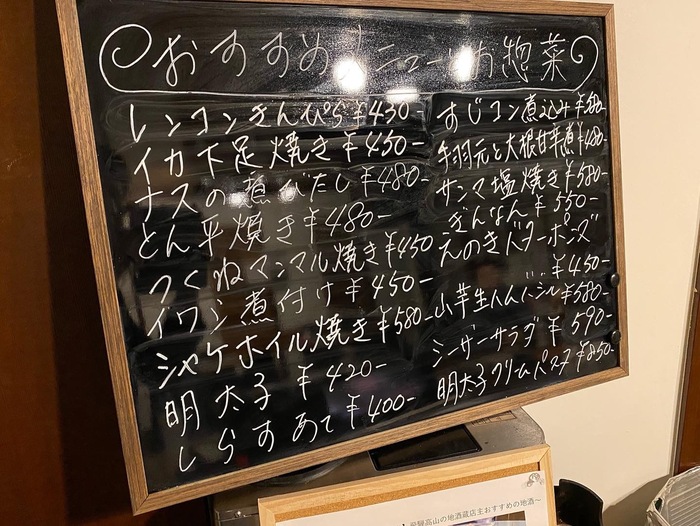 おすすめメニューとお惣菜
レンコンきんぴら ¥430-
イカ下足焼き ¥450-
ナスの煮びたし ¥480-
とん平焼き ¥480-
つくねマンマル焼き ¥450
イワシ煮付け ¥450-
シャケホイル焼き ¥580-
明太子 ¥420-
しらすあて ¥400-
すじコン煮込み ¥580-
手羽元と大根甘辛煮 ¥480-
サンマ塩焼き ¥580-
ぎんなん ¥550-
えのきバターポンズ
¥450-
山芋生ハム ¥580-
シーザーサラダ ¥590-
明太子クリームパスタ ¥850-
飛騨高山の地酒蔵店主おすすめの地酒～